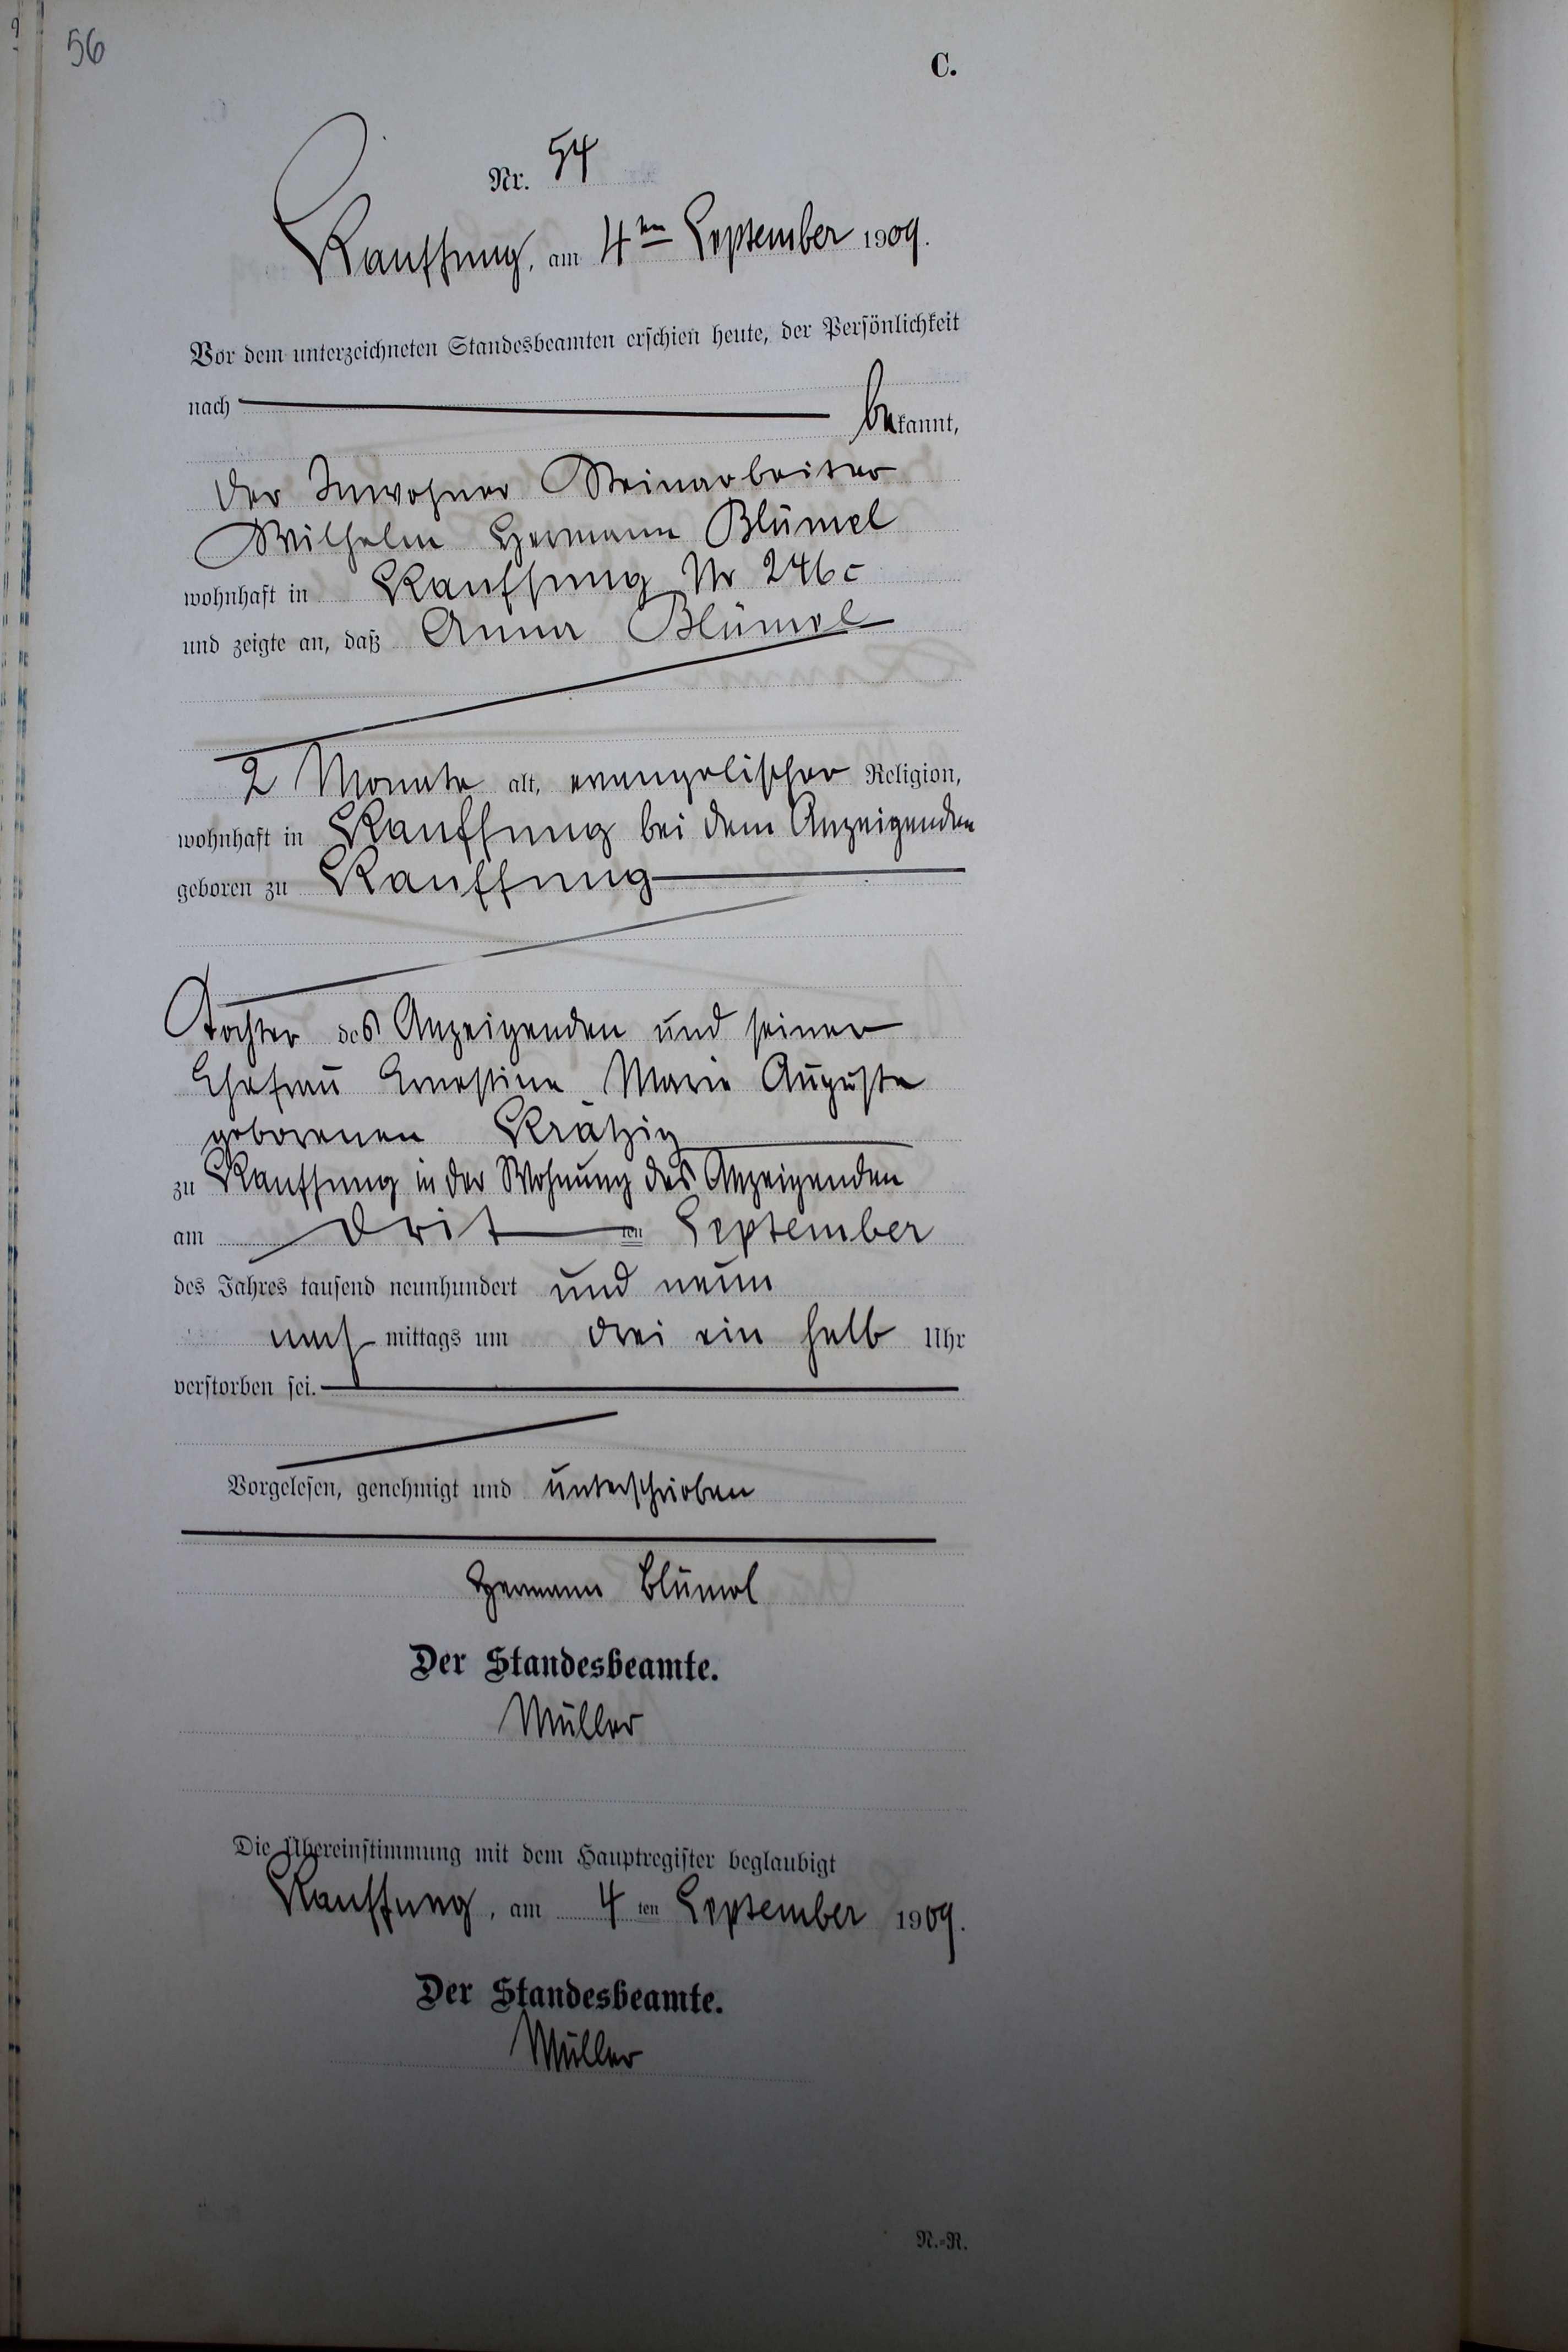 56
C.
Nr. 54
Kauffung, am 4ten September 1909.
Vor dem unterzeichneten Standesbeamten erschien heute, der Persönlichkeit
nach bekannt,
der Inwohner Steinarbeiter
Wilhelm Hermann Blümel
wohnhaft in Kauffung Nr 246c
und zeigte an, daß Anna Blümel
2 Monate alt, evangelischer Religion,
wohnhaft in Kauffung bei dem Anzeigenden
geboren zu Kauffung
Tochter des Anzeigenden und seiner
Ehefrau Ernestine Marie Auguste
geborenen Krätzig
zu Kauffung in der Wohnung des Anzeigenden
am drit ten September
des Jahres tausend neunhundert und neun
nach mittags um drei ein halb Uhr
verstorben sei.
Vorgelesen, genehmigt und unterschrieben
Hermann Blümel
Der Standesbeamte.
Müller
Die Übereinstimmung mit dem Hauptregister beglaubigt
Kauffung, am 4 ten September 1909.
Der Standesbeamte.
Müller
N.=R.